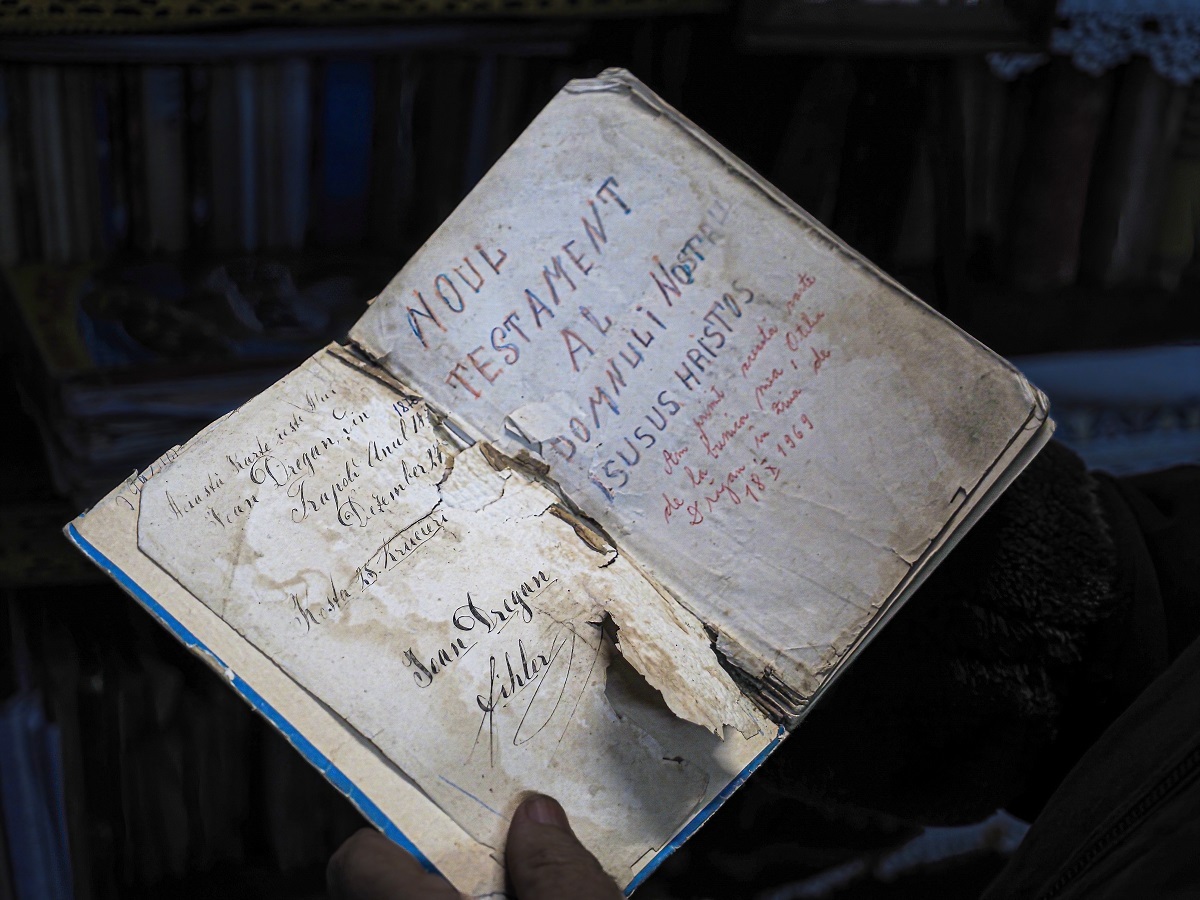 Acastă Karte este alui
Ioan Dregan, din
Trapolt Anul 18
Dezember 24
Kosta 25. Kruceri
Ioan Dregan
Fihler
NOUL
TESTAMENT
AL
DOMNULI NOSTRU
ISUSUS HRISTOS
Am primit aceasta carte
de la bunica mea, Otilia
Drăgan în ziua de
18 X 1969